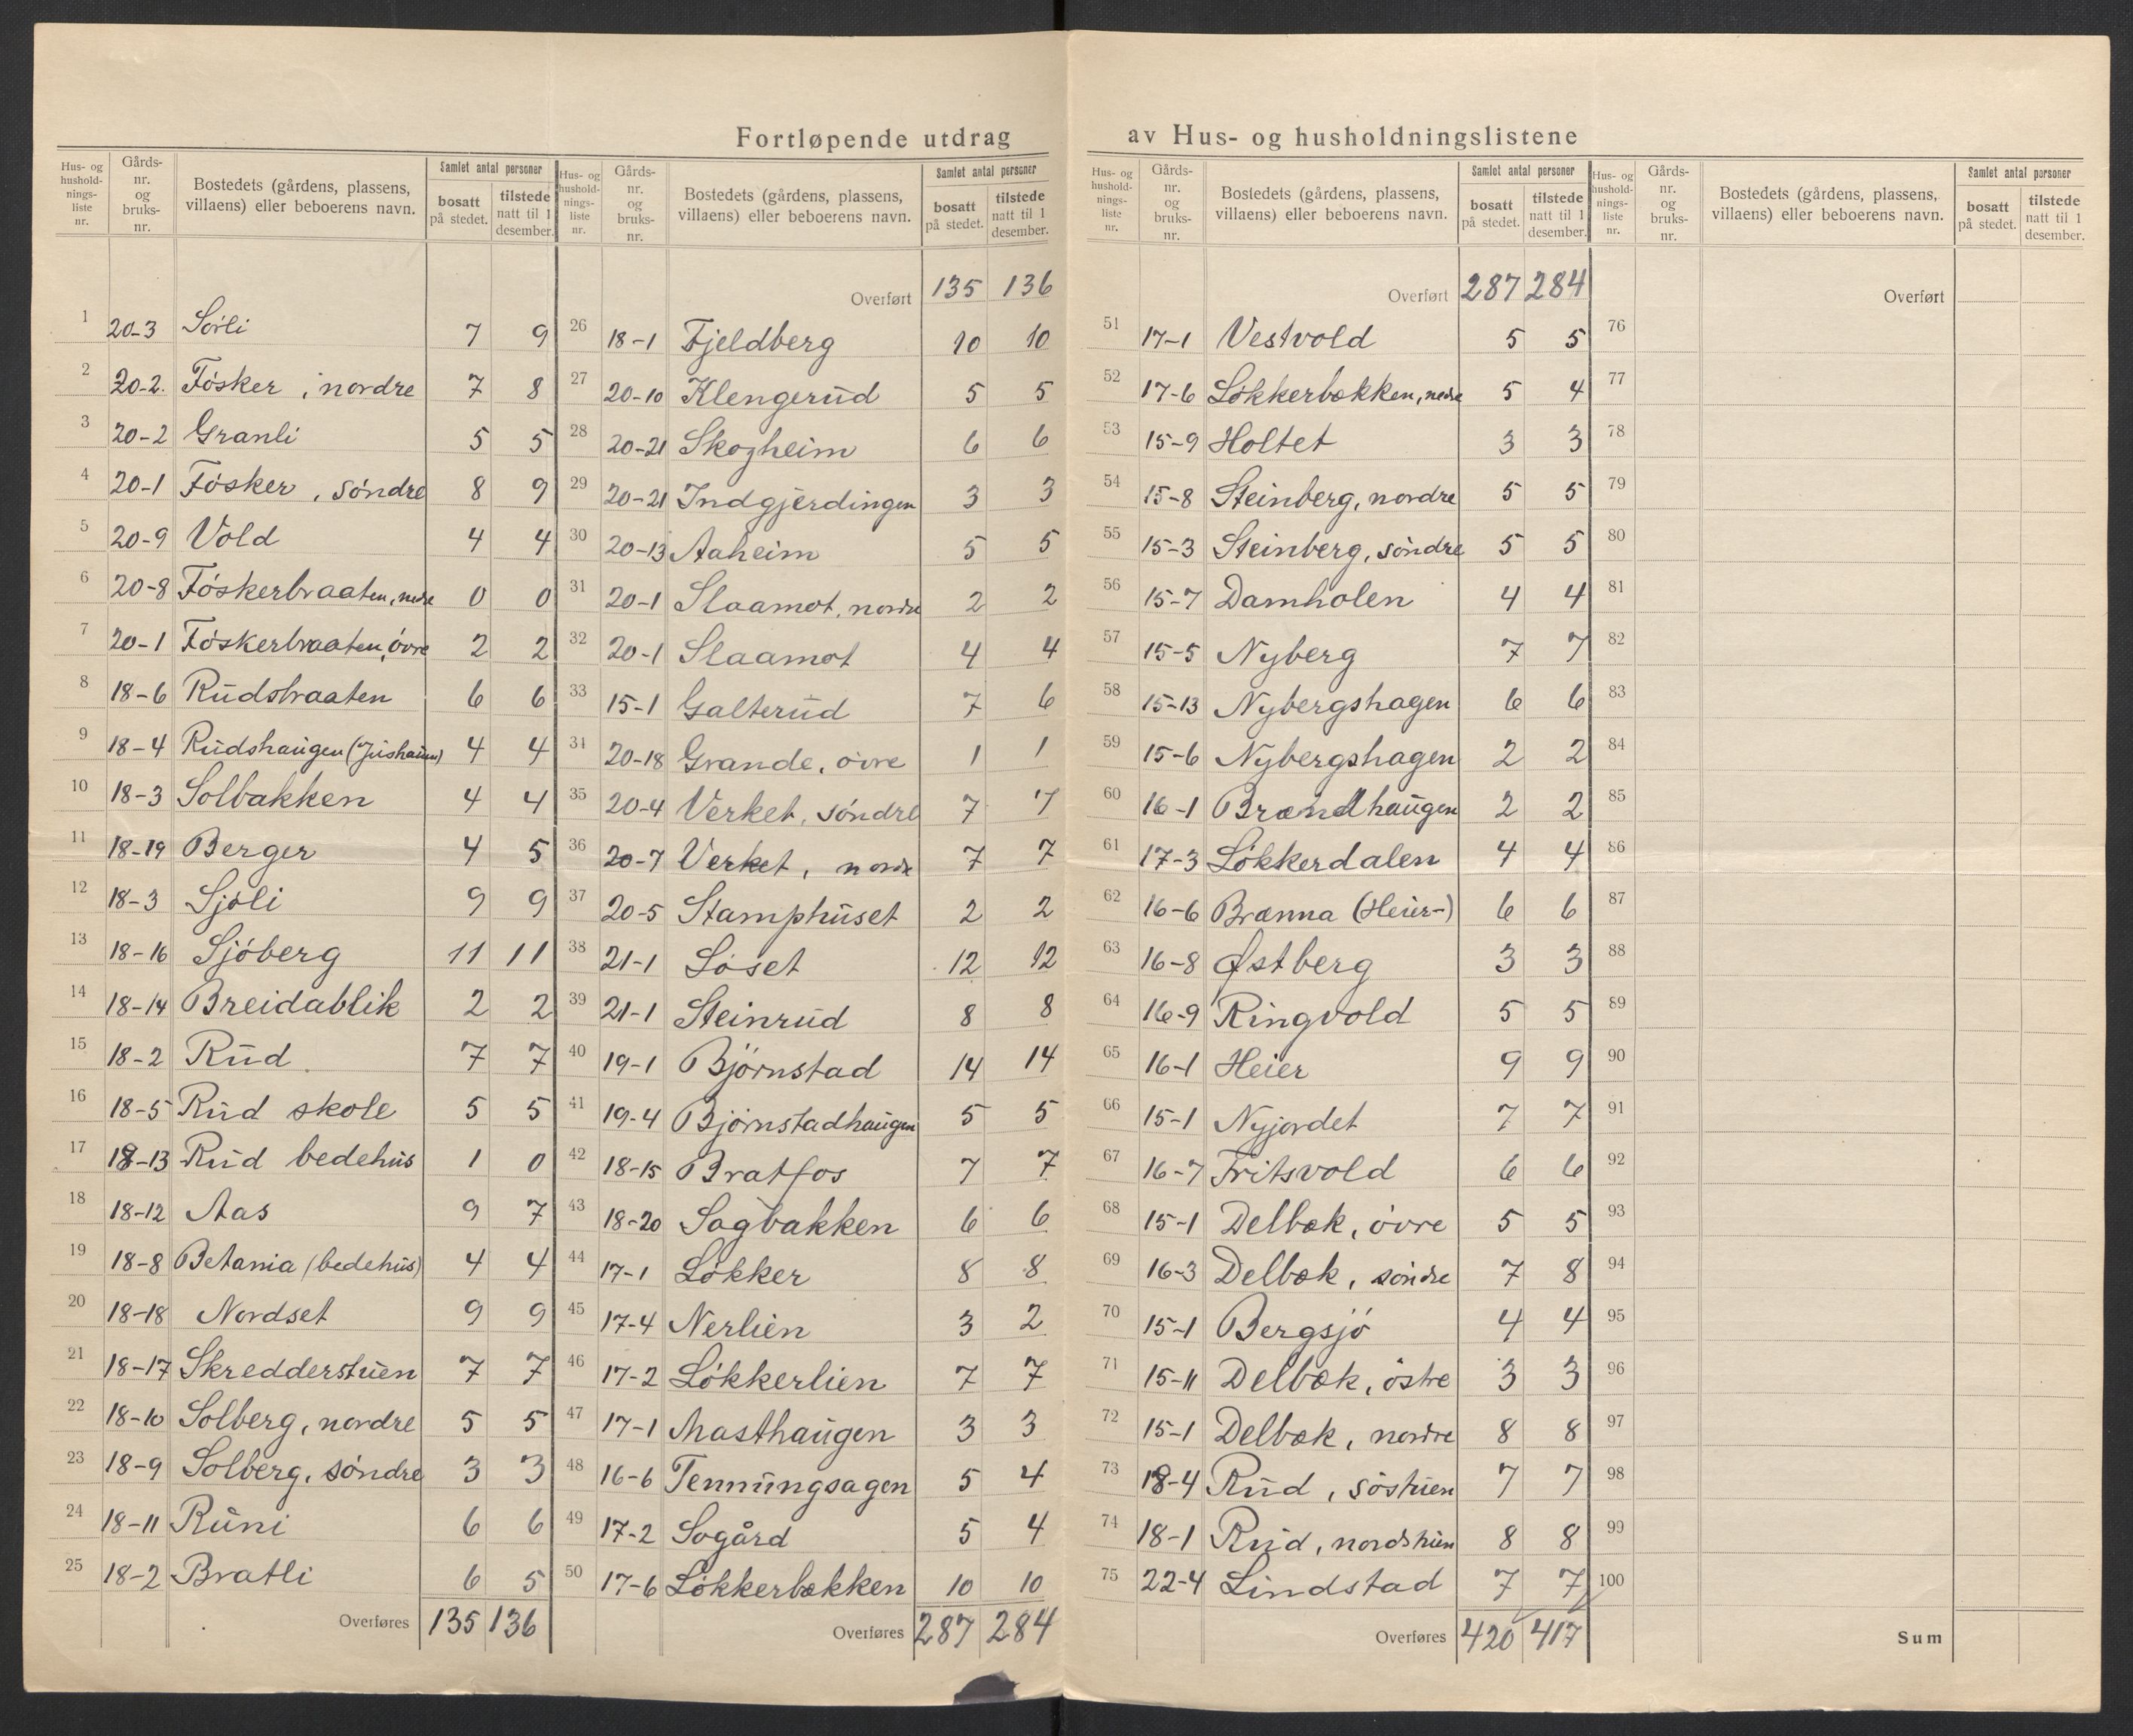 Fortløpende utdrag av Hus- og husholdningslistene
Hus- og hushold-nings-liste nr. | Gårds-nr. og bruks-nr. | Bostedets (gårdens, plassens, villaens) eller beboerens navn. | Samlet antal personer | bosatt på stedet. | tilstede natt til 1 desember.
1 20-3 Sörli 7 9
2 20-2. Fösker, nordre 7 8
3 20-2 Granli 5 5
4 20-1 Fösker, söndre 8 9
5 20-9 Vold 4 4
6 20-8 Föskerbraaten, nedre 0 0
7 20-1 Föskerbraaten, övre 2 2
8 18-6 Rudsbraaten 6 6
9 18-4 Rudshaugen 4 4
10 18-3 Solbakken 4 4
11 18-19 Berger 4 5
12 18-3 Sjöli 9 9
13 18-16 Sjöberg 11 11
14 18-14 Breidablik 2 2
15 18-2 Rud 7 7
16 18-5 Rud skole 5 5
17 18-13 Rud bedehus 1 0
18 18-12 Aas 9 7
19 18-8 Betania (bedehus) 4 4
20 18-18 Nordset 9 9
21 18-17 Skredderstuen 7 7
22 18-10 Solberg, nordre 5 5
23 18-9 Solberg, söndre 3 3
24 18-11 Runi 6 6
25 18-2 Bratli 6 5
Overføres 135 136
Hus- og hushold-nings-liste nr. | Gårds-nr. og bruks-nr. | Bostedets (gårdens, plassens, villaens) eller beboerens navn. | Samlet antal personer | bosatt på stedet. | tilstede natt til 1 desember.
Overført 135 136
26 18-1 Fjeldberg 10 10
27 20-10 Klengerud 5 5
28 20-21 Skogheim 6 6
29 20-21 Indgjerdingen 3 3
30 20-13 Aaheim 5 5
31 20-1 Slaamot, nordre 2 2
32 20-1 Slaamot 4 4
33 15-1 Galterud 7 6
34 20-18 Grande, övre 1 1
35 20-4 Verket, söndre 7 7
36 20-7 Verket, nordre 7 7
37 20-5 Stamphuset 2 2
38 21-1 Löset 12 12
39 21-1 Steinrud 8 8
40 19-1 Björnstad 14 14
41 19-4 Björnstadhaugen 5 5
42 18-15 Bratfos 7 7
43 18-20 Sagbakken 6 6
44 17-1 Lökker 8 8
45 17-4 Nerlien 3 2
46 17-2 Lökkerlien 7 7
47 17-1 Masthaugen 3 3
48 16-6 Tennungsagen 5 4
49 17-2 Sogård 5 4
50 17-6 Lökkerbækken 10 10
Overføres 287 284
Hus- og hushold-nings-liste nr. | Gårds-nr. og bruks-nr. | Bostedets (gårdens, plassens, villaens) eller beboerens navn. | Samlet antal personer | bosatt på stedet. | tilstede natt til 1 desember.
Overført 287 284
51 17-1 Vestvold 5 5
52 17-6 Lökkerbækken, nedre 5 4
53 15-9 Holtet 3 3
54 15-8 Steinberg, nordre 5 5
55 15-3 Steinberg, söndre 5 5
56 15-7 Damholen 4 4
57 15-5 Nyberg 7 7
58 15-13 Nybergshagen 6 6
59 15-6 Nybergshagen 2 2
60 16-1 Brændhaugen 2 2
61 17-3 Lökkerdalen 4 4
62 16-6 Brænna (Heier-) 6 6
63 16-8 Østberg 3 3
64 16-9 Ringvold 5 5
65 16-1 Heier 9 9
66 15-1 Nyjordet 7 7
67 16-7 Fritsvold 6 6
68 15-1 Delbæk, övre 5 5
69 16-3 Delbæk, söndre 7 8
70 15-1 Bergsjö 4 4
71 15-11 Delbæk, östre 3 3
72 15-1 Delbæk, nordre 8 8
73 18-4 Rud, söstuen 7 7
74 18-1 Rud, nordstuen 8 8
75 22-4 Lindstad 7 7
Overføres 420 417
Hus- og hushold-nings-liste nr. | Gårds-nr. og bruks-nr. | Bostedets (gårdens, plassens, villaens) eller beboerens navn. | Samlet antal personer | bosatt på stedet. | tilstede natt til 1 desember.
Overført
76
77
78
79
80
81
82
83
84
85
86
87
88
89
90
91
92
93
94
95
96
97
98
99
100
Sum